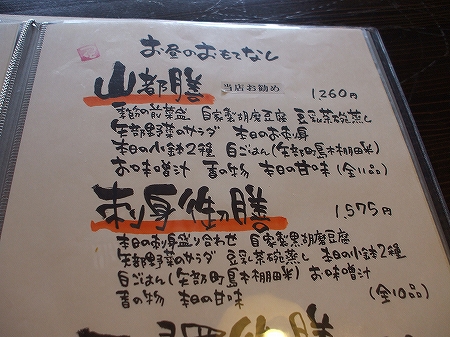 お昼のおもてなし
山都膳 当店お勧め 1,260円
季節の前菜盛 自家製胡麻豆腐 豆乳茶碗蒸し
矢部野菜のサラダ 本日のお刺身
本日の小鉢2種 白ごはん(矢部町島木棚田米)
お味噌汁 香の物 本日の甘味 (全11品)
刺身御膳 1,575円
本日の刺身盛り合わせ 自家製黒胡麻豆腐
矢部野菜のサラダ 豆乳茶碗蒸し 本日の小鉢2種
白ごはん(矢部町島木棚田米) お味噌汁
香の物 本日の甘味 (全10品)